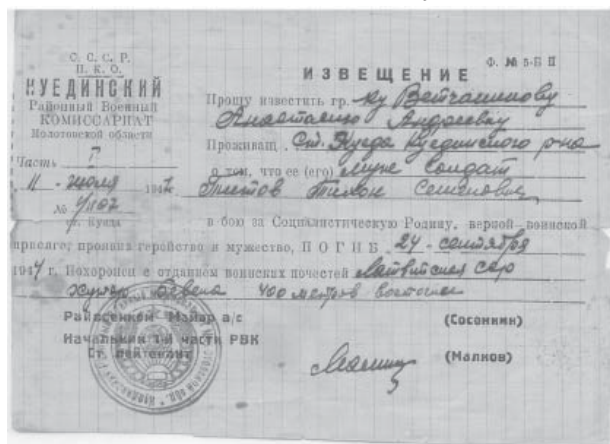 С. С. С. Р.
Н. К. О.
КУЕДИНСКИЙ
Районный Военный
КОМИССАРИАТ
Молотовской области
Часть I
11 - июля 194
№ 4/1107
ст. Куеда
Ф. № 5-Б П
ИЗВЕЩЕНИЕ
Прошу известить гр. ку
Анастасию Андреевну
Проживащ. Ст. Куеда Куединского р-на
о том, что ее (его) муж Солдат
Титов Тихон Семенович
в бою за Социалистическую Родину, верной воинской
присяге, проявив геройство и мужество, ПОГИБ 24 - сентября
1944 г. Похоронен с отданием воинских почестей Латвийская сср
хутор 400 метров восточнее
Райвоенком Майор а/с
(Сосонкин)
Начальник 1-й части РВК
Ст. лейтенант
(Малков)